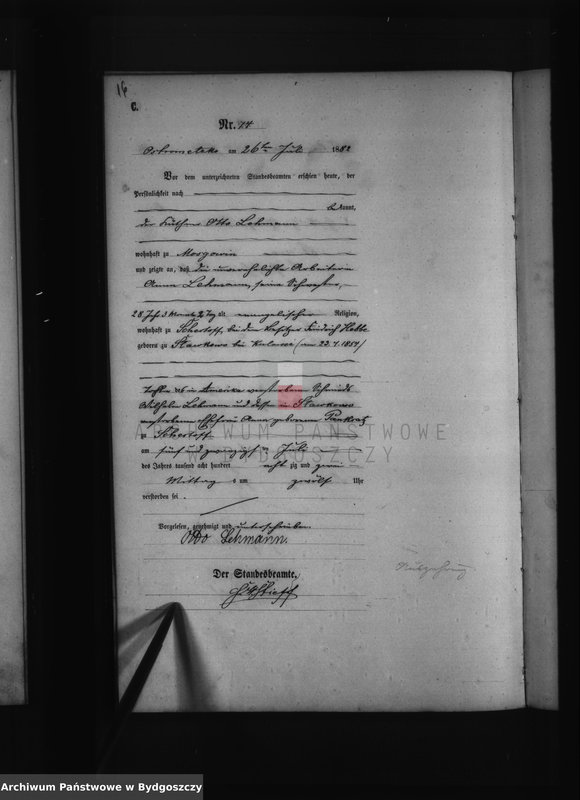 16
C.
Nr. 14
Ostrometzko am 26ten Juli 1882
Vor dem unterzeichneten Standesbeamten erschien heute, der
Persönlichkeit nach
kannt,
der Otto Lehmann
wohnhaft zu Mozgowin
und zeigte an, daß die unverehelichte Arbeiterin
Anna Lehmann, seine Schwester,
28 Jahr 3 Monat 2 Tag alt evangelischer Religion,
wohnhaft zu bei dem Besitzer Friedrich
geboren zu bei (am 23. 1854)
Tochter des in Amerika verstorbenen Schmieds
Wilhelm Lehmann und dessen in
verstorbenen Ehefrau Anna geborenen Pankratz
zu
am fünf und zwanzigsten Juli
des Jahres tausend acht hundert achtzig und zwei
Mittag um zwölf Uhr
verstorben sei.
Vorgelesen, genehmigt und unterschrieben.
Otto Lehmann.
Der Standesbeamte.
ARCHIWUM PAŃSTWOWE
W BYDGOSZCZY
Archiwum Państwowe w Bydgoszczy